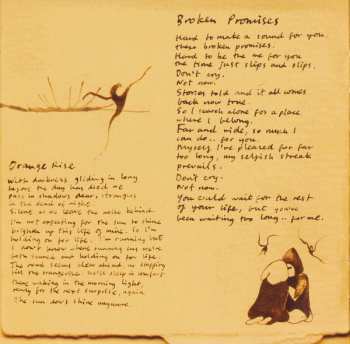 Broken Promises
Hard to make a sound for you,
these broken promises.
Hard to be the me for you
the time just slips and slips.
Don't cry.
Not now.
Stories told and it all comes
back now tone.
So I search alone for a place
where I belong.
Far and wide, so much I
can do.. for you.
Myself I've pleased for far
too long, my selfish streak
prevails.
Don't cry.
Not now.
You could wait for the rest
of your life, but you've
been waiting too long.. for me.
Orange Rise
With darkness gliding in long
before the day has died me
Pass in shadows dear, strangers
in the dead of night.
Silent as we leave the noise behind.
I'm not expecting for the sun to shine
brighten up this life of mine. So I'm
holding on for life. I'm running but
I don't know where running us we're
both scared but holding on for life.
The road seems clear ahead no stopping
till the orangerise. we'll sleep in comfort
then waking in the morning light,
ready for the next surprise, again.
The sun don't shine anymore.